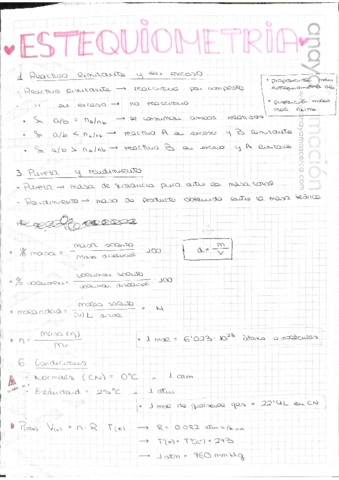 ♥ESTEQUIOMETRIA♥
1. Reactivo limitante y en exceso
- Reactivo limitante → reacciona por completo
" en exceso → no reacciona
• Si a/b = na/nb → se consumen ambos reactivos
• Si a/b < na/nb → reactivo A en exceso y B limitante
• Si a/b > na/nb → reactivo B en exceso y A limitante
• proporción
• proporción
3. Pureza y rendimiento
- Pureza → masa de sustancia pura entre la masa total
- Rendimiento → masa de producto obtenido entre la masa teórica
• % masa = masa soluto / masa disolución · 100
d = m/V
• % volumen = volumen soluto / volumen disolución · 100
• molaridad = moles soluto / (V) L disol = M
• n = masa (g) / Mr
• 1 mol = 6'023 · 10²³ átomos o moléculas.
6. Condiciones
- Normales (CN) = 0°C, 1 atm
- Estándar = 25°C, 1 atm
• 1 mol de gas = 22'4L en CN
• P(atm) V(L) = n · R · T(K) → R = 0.082
→ T(K) = T(°C) + 273
→ 1 atm = 760 mmHg